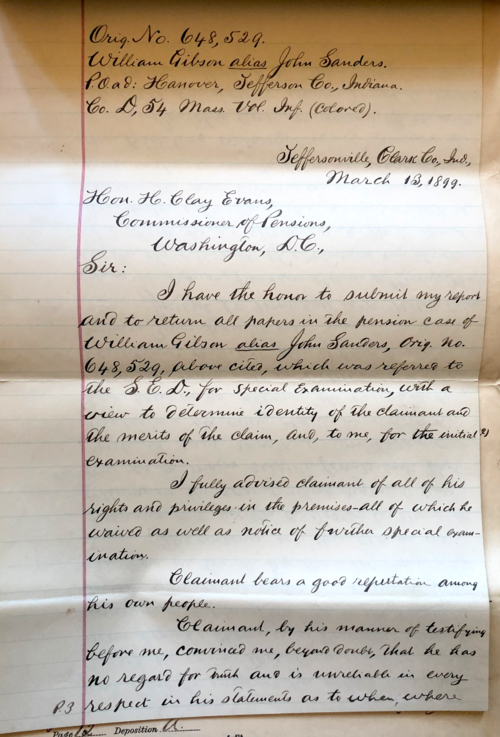 Orig. No. 648,529.
William Gibson alias John Sanders.
P.O. ad: Hanover, Jefferson Co., Indiana.
Co. D, 54 Mass. Vol. Inf. (Colored).
Jeffersonville, Clark Co., Ind.,
March 13, 1899.
Hon. H. Clay Evans,
Commissioner of Pensions,
Washington, D.C.,
Sir:
I have the honor to submit my report
and to return all papers in the pension case of
William Gibson alias John Sanders, Orig. no.
648,529, above cited, which was referred to
the S. E. D., for special examination, with a
view to determine identity of the claimant and
the merits of the claim, and, to me, for the initial
examination.
I fully advised claimant of all of his
rights and privileges in the premises-all of which he
waived as well as notice of further special exam-
ination.
Claimant bears a good reputation among
his own people.
Claimant, by his manner of testifying
before me, convinced me, beyond doubt, that he has
no regard for truth and is unreliable in every
P3 respect in his statements as to when, where
Page 12 Deposition A.